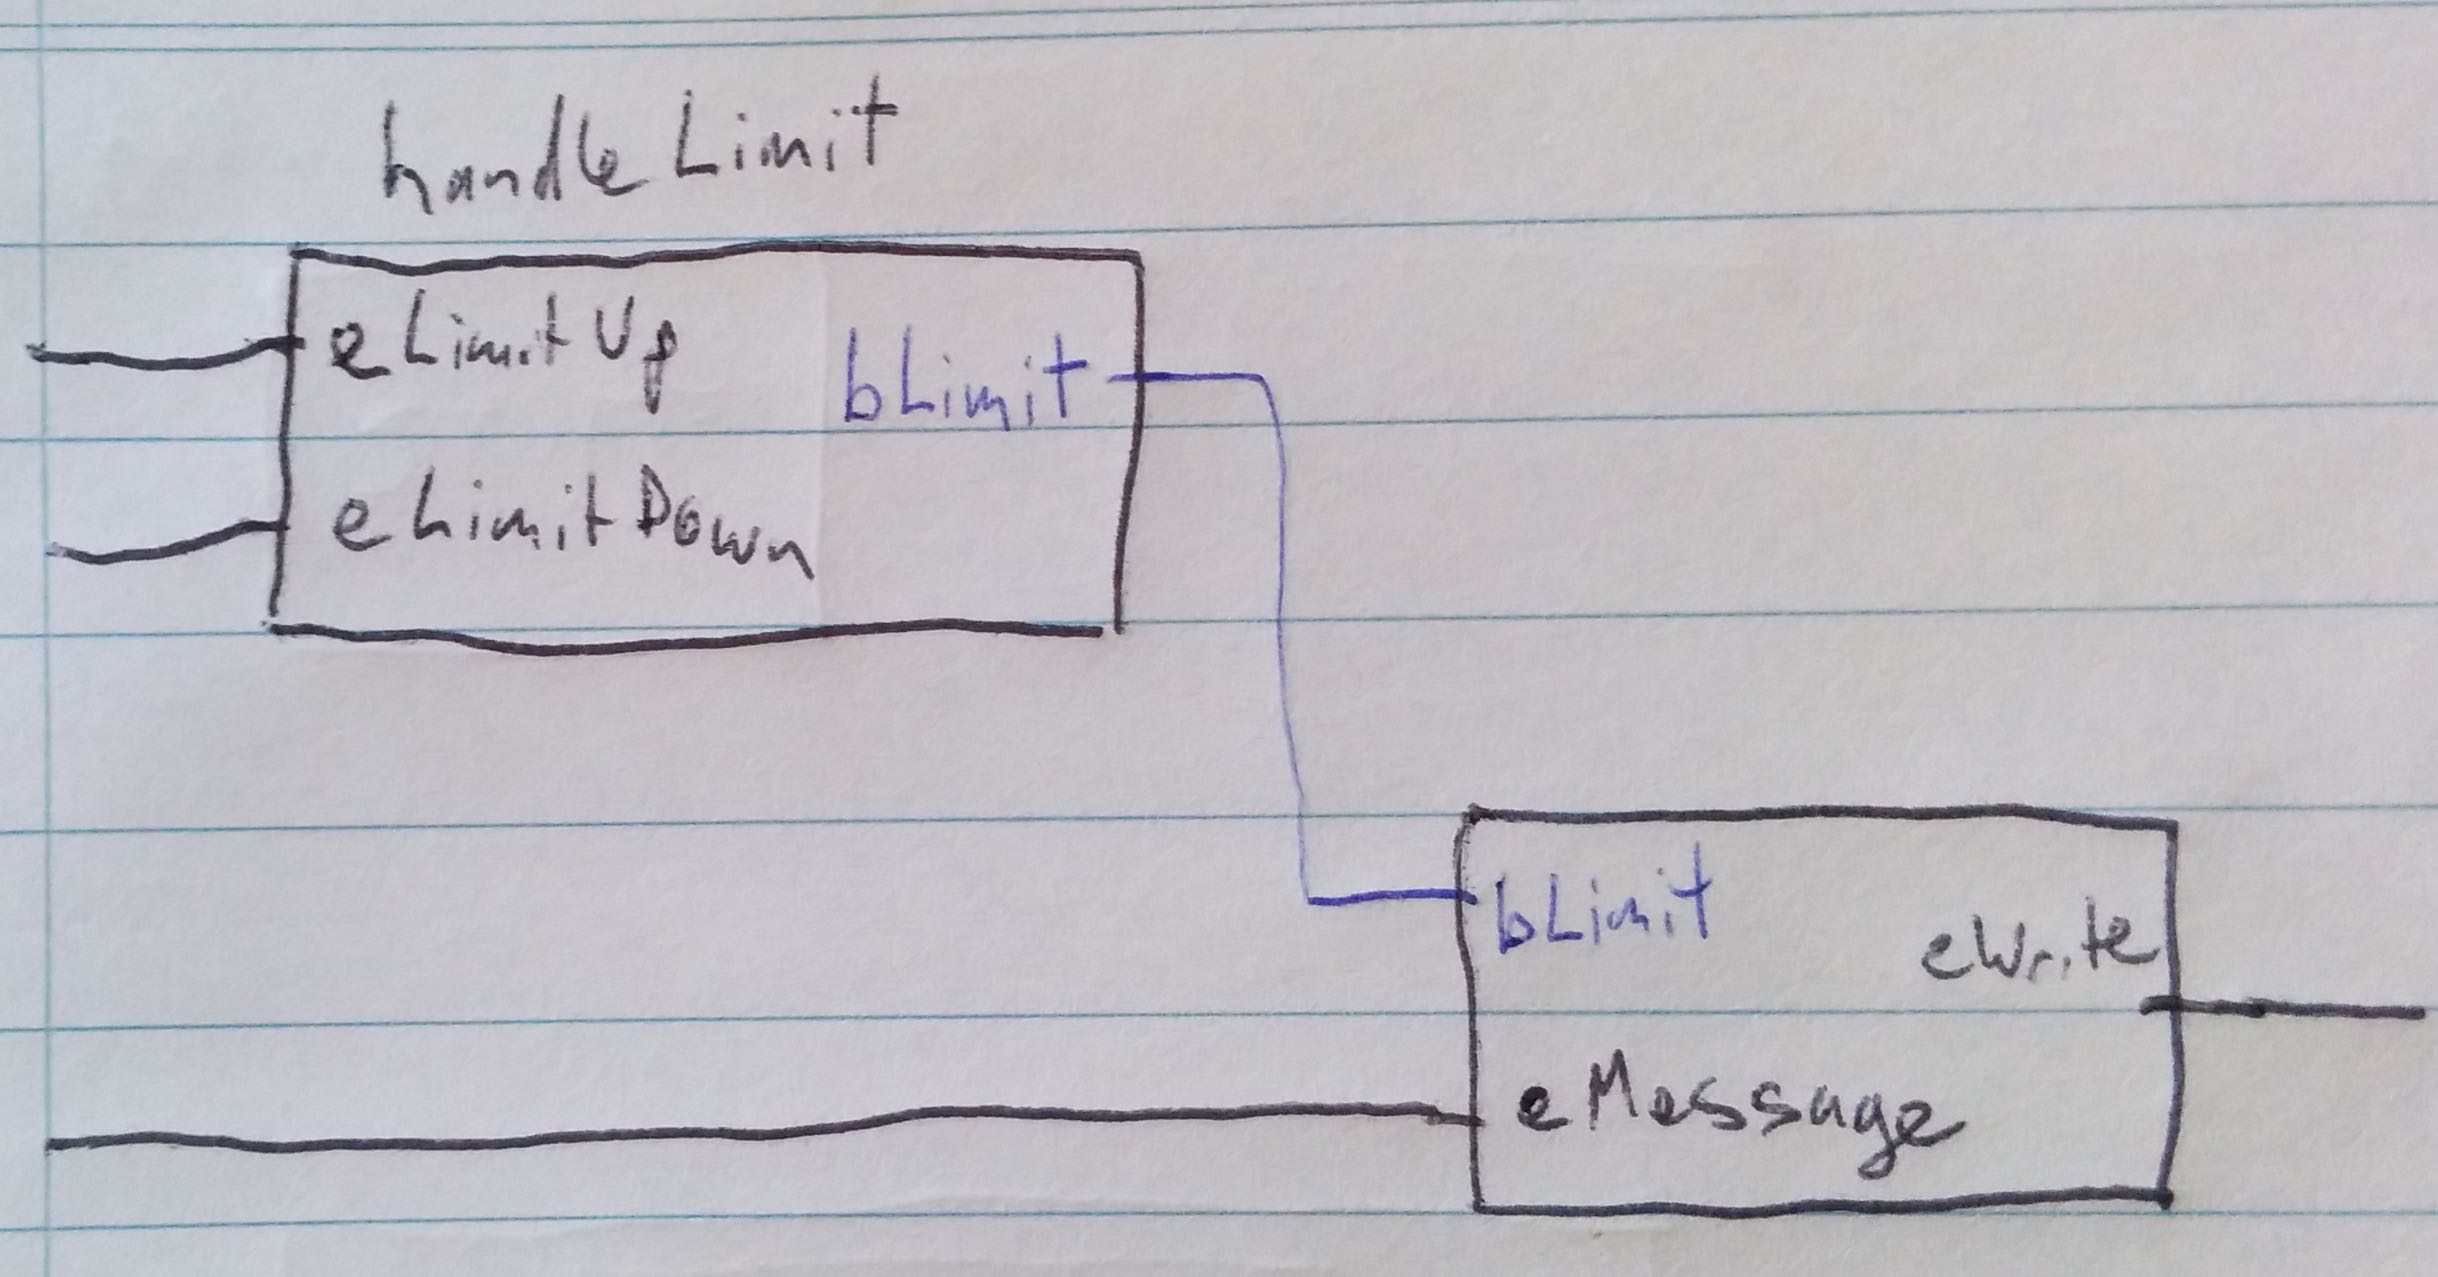 handleLimit
eLimitUp
bLimit
eLimitDown
bLimit
eWrite
eMessage